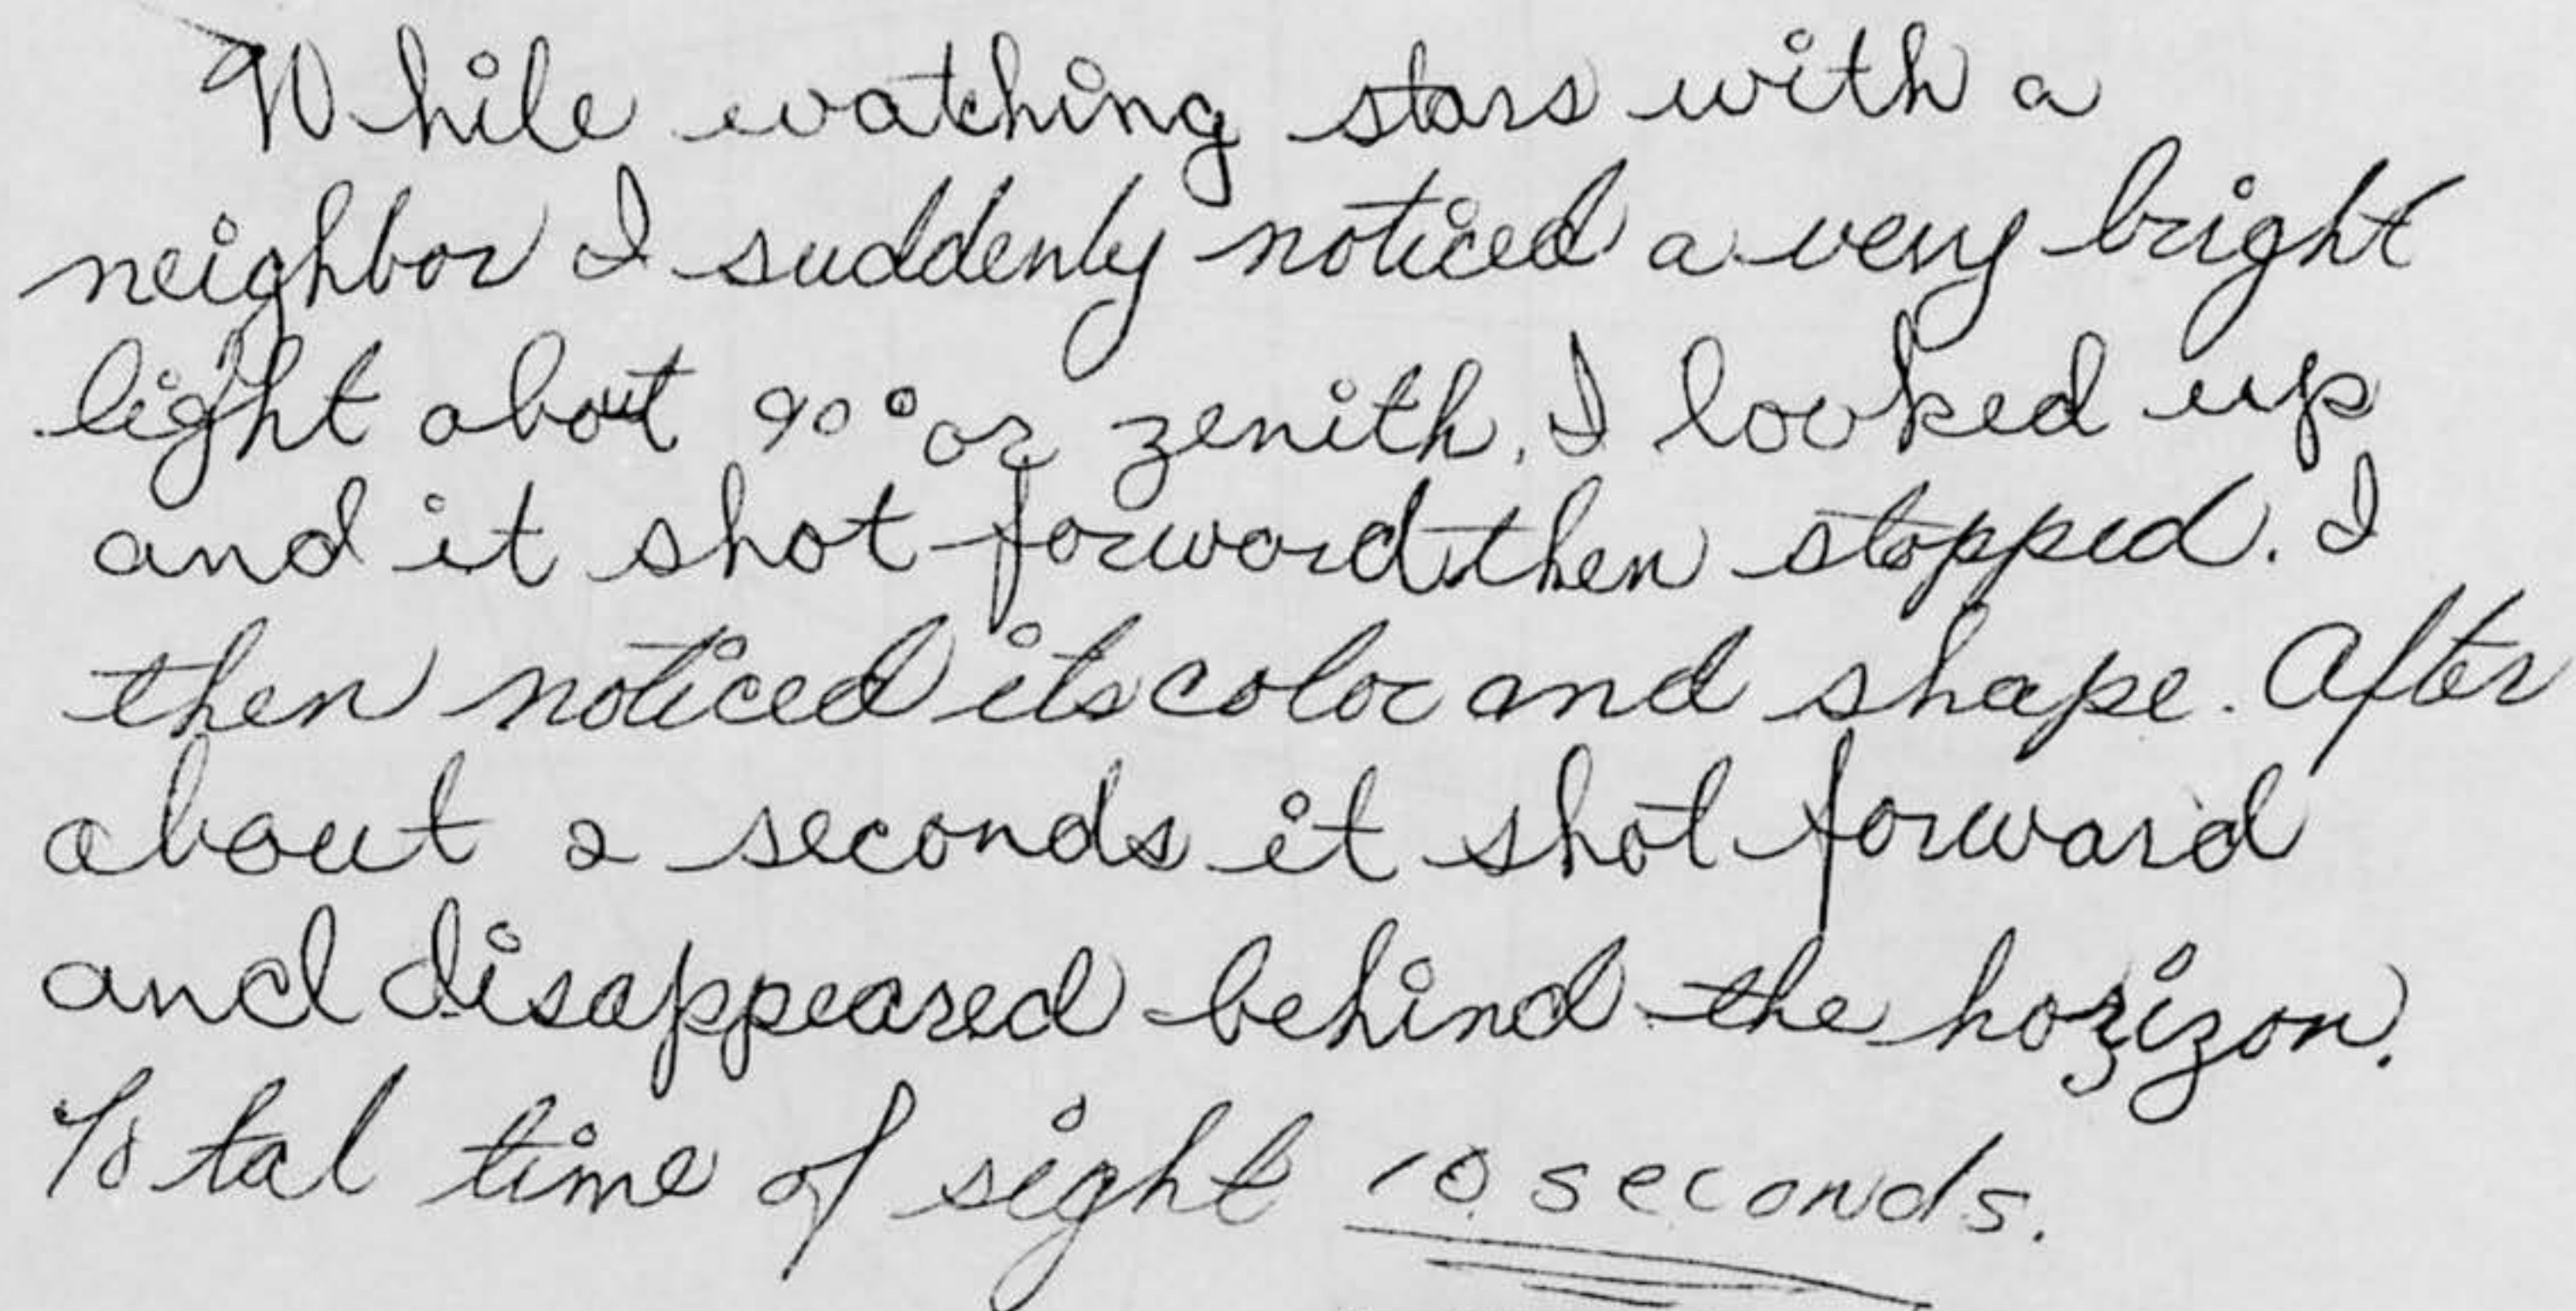 While watching stars with a
neighbor I suddenly noticed a very bright
light about 90° or zenith. I looked up
and it shot forward then stopped. I
then noticed its color and shape. After
about 2 seconds it shot forward
and disappeared behind the horizon.
Total time of sight 10 seconds.